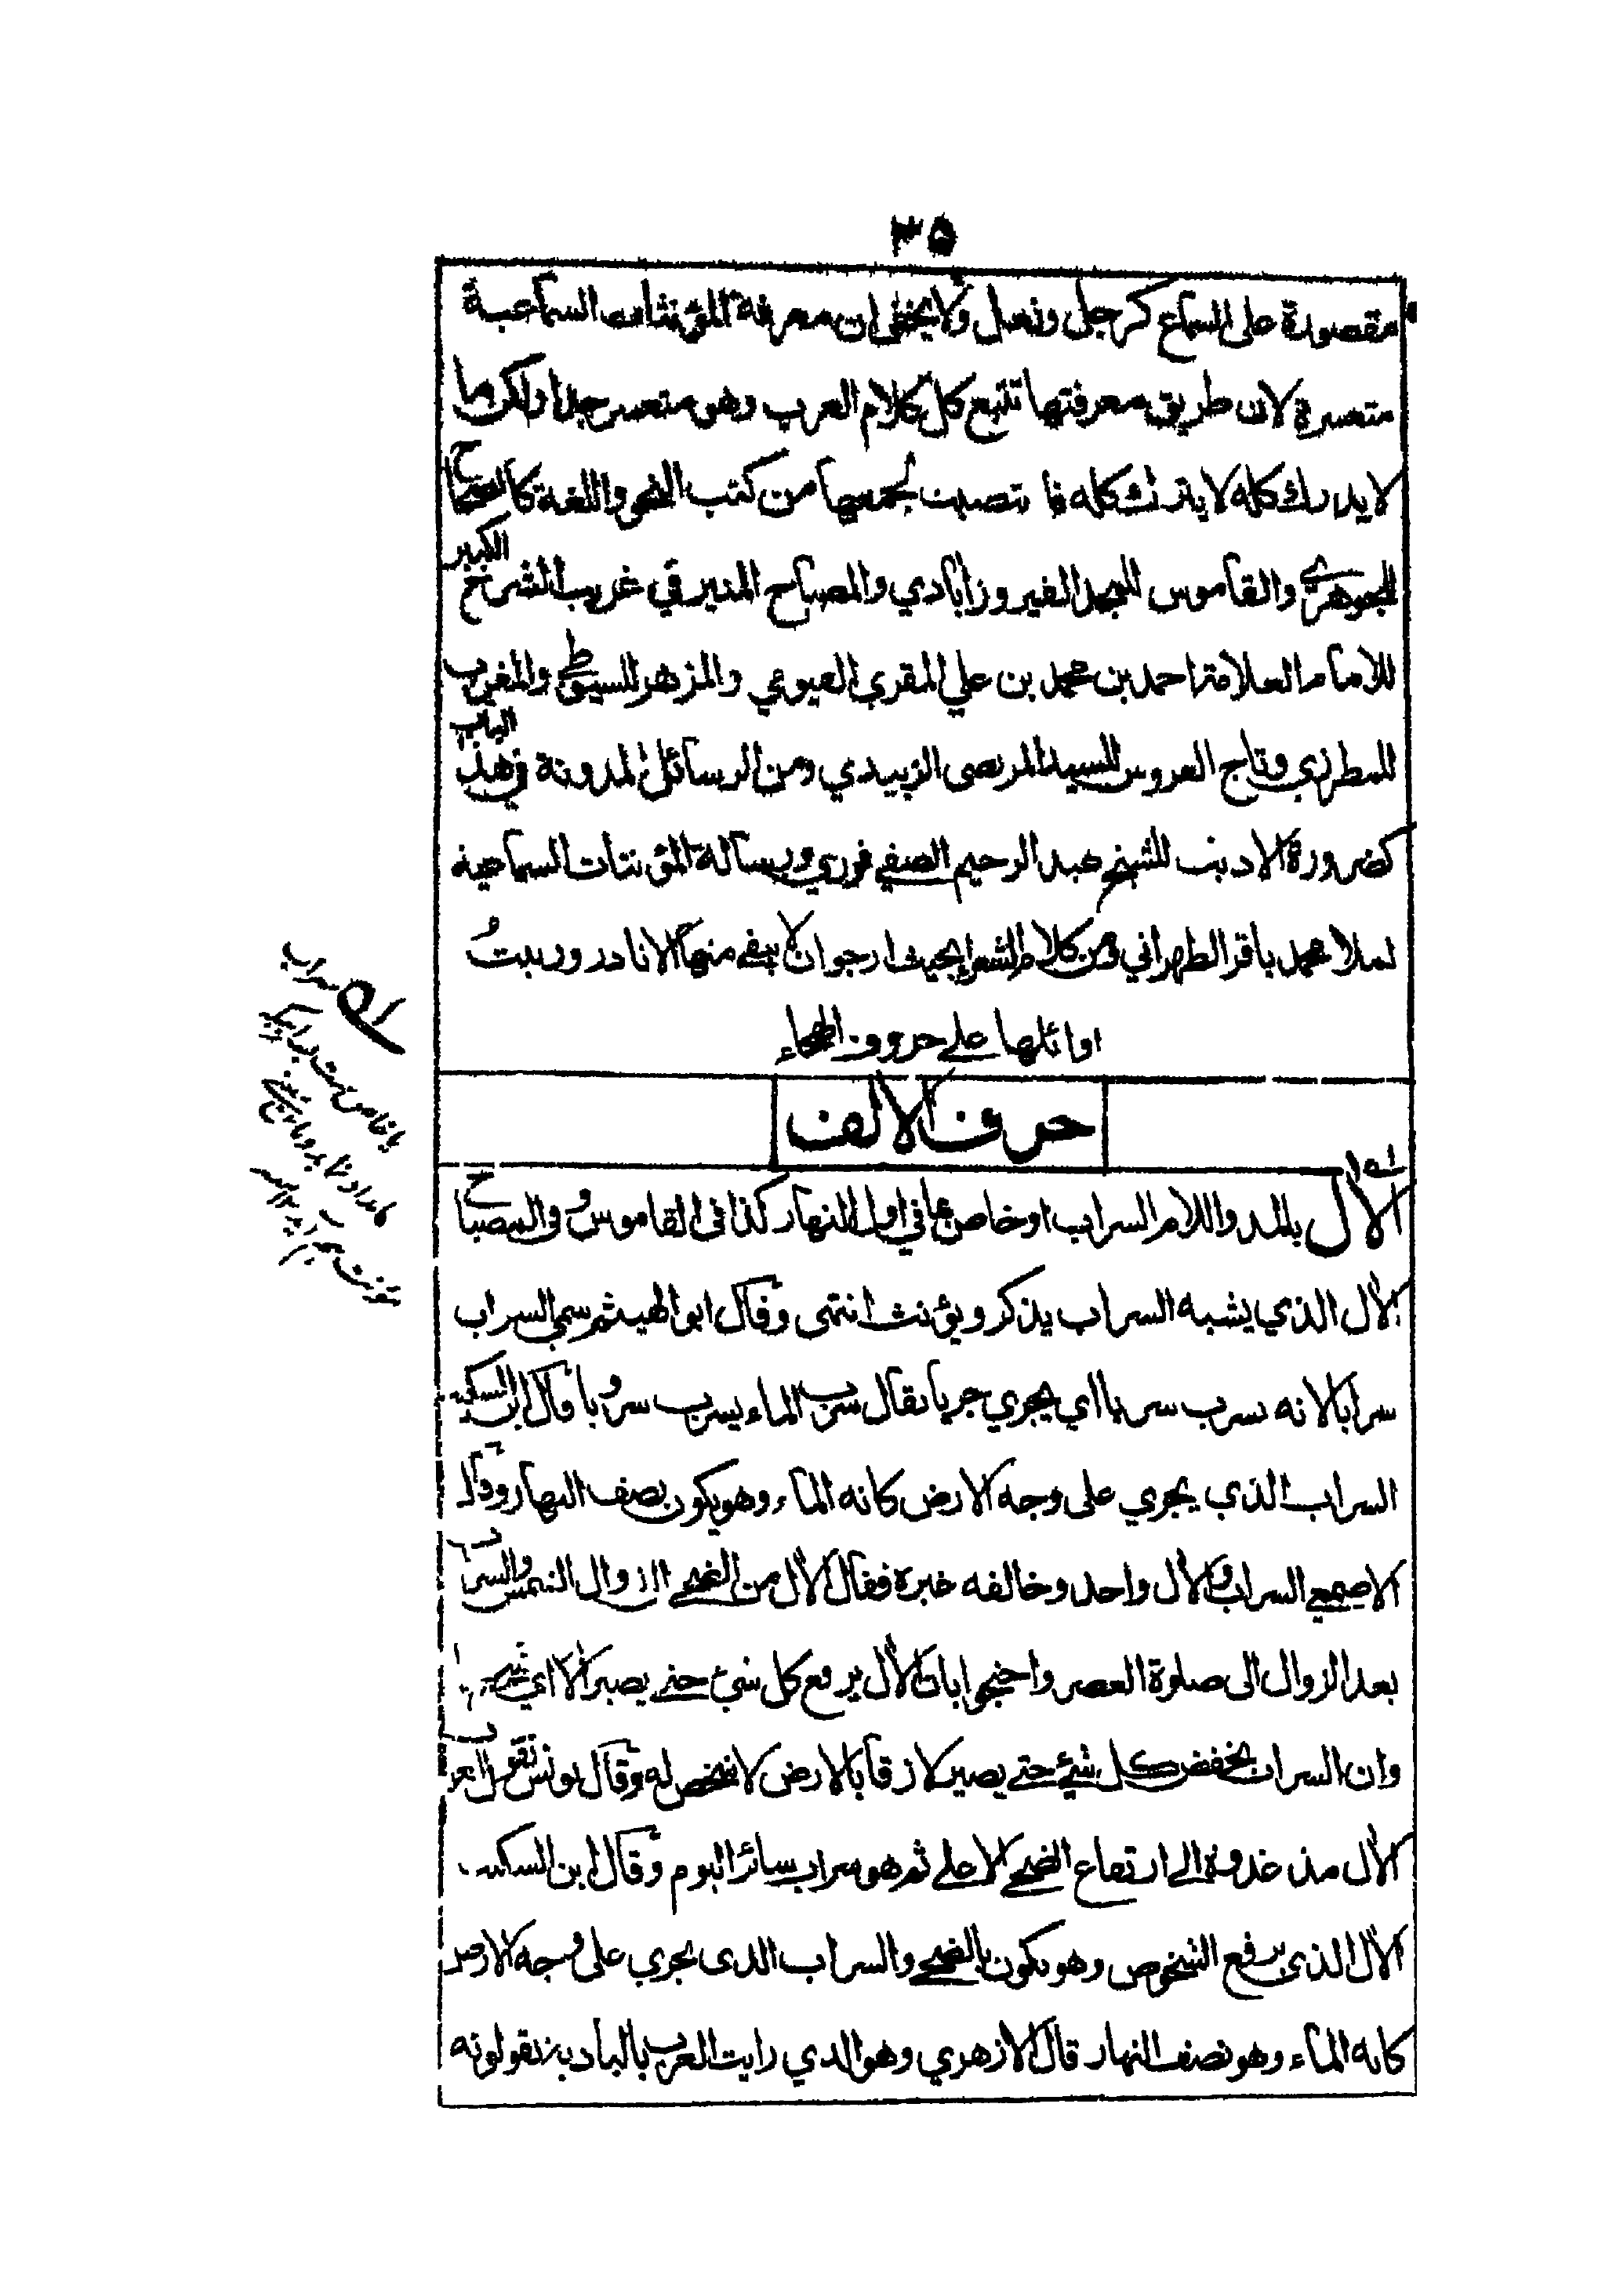 ٣٥
مقصورة على السماع كرجل ونعل ولا يخفى ان معرفة المؤنثات السماعية
متعسرة لان طريق معرفتها تتبع كل كلام العرب وهو متعسر جدا ولكن ما
لا يدرك كله لا يترك كله فا تصديت لجمعها من كتب النحو واللغة كالصحاح
للجوهري والقاموس للمجد الفيروزابادي والمصباح المنير في غريب الشرح الكبير
للامام العلامة احمد بن محمد بن علي المقري الفيومي والمزهر للسيوطي والمغرب
للمطرزي وتاج العروس للسيد المرتضى الزبيدي ومن الرسائل المدونة في هذا الباب
كضرورة الاديب للشيخ عبد الرحيم الصفي فوري ورسالة المؤنتات السماعية
لملا محمد باقر الطهراني ومن كلام الشعراء بحيث ارجو ان لا يبقى منها الا نادر ورتبت
اوائلها على حروف الهجاء
حرف الالف
الآل بالمد واللام السراب او خاص بما في اول النهار كذا في القاموس وفي المصباح
الآل الذي يشبه السراب يذكر ويؤنث انتهى وقال ابو الهيثم سمي السراب
سرابا لانه يسرب سربا اي يجري جريا يقال سرب الماء يسرب سروبا وقال ابن السكيت
السراب الذي يجري على وجه الارض كانه الماء وهو يكون نصف النهار وقال
الاصمعي السراب والآل واحد وخالفه غيره فقال الآل من الضحى الى زوال الشمس والسراب
بعد الزوال الى صلوة العصر واحتجوا بان الآل يرفع كل شيء حتى يصير آلا اي شخصا
وان السراب يخفض كل شئ حتى يصير لازقا بالارض لا شخص له وقال يونس تقول العرب
الآل مذ غدوة الى ارتفاع الضحى الاعلى ثم هو سراب سائر اليوم وقال ابن السكيت
الآل الذي يرفع الشخوص وهو يكون بالضحى والسراب الذي يجري على وجه الارض
كانه الماء وهو نصف النهار قال الازهري وهو الذي رايت العرب بالبادية يقولونه
سراب